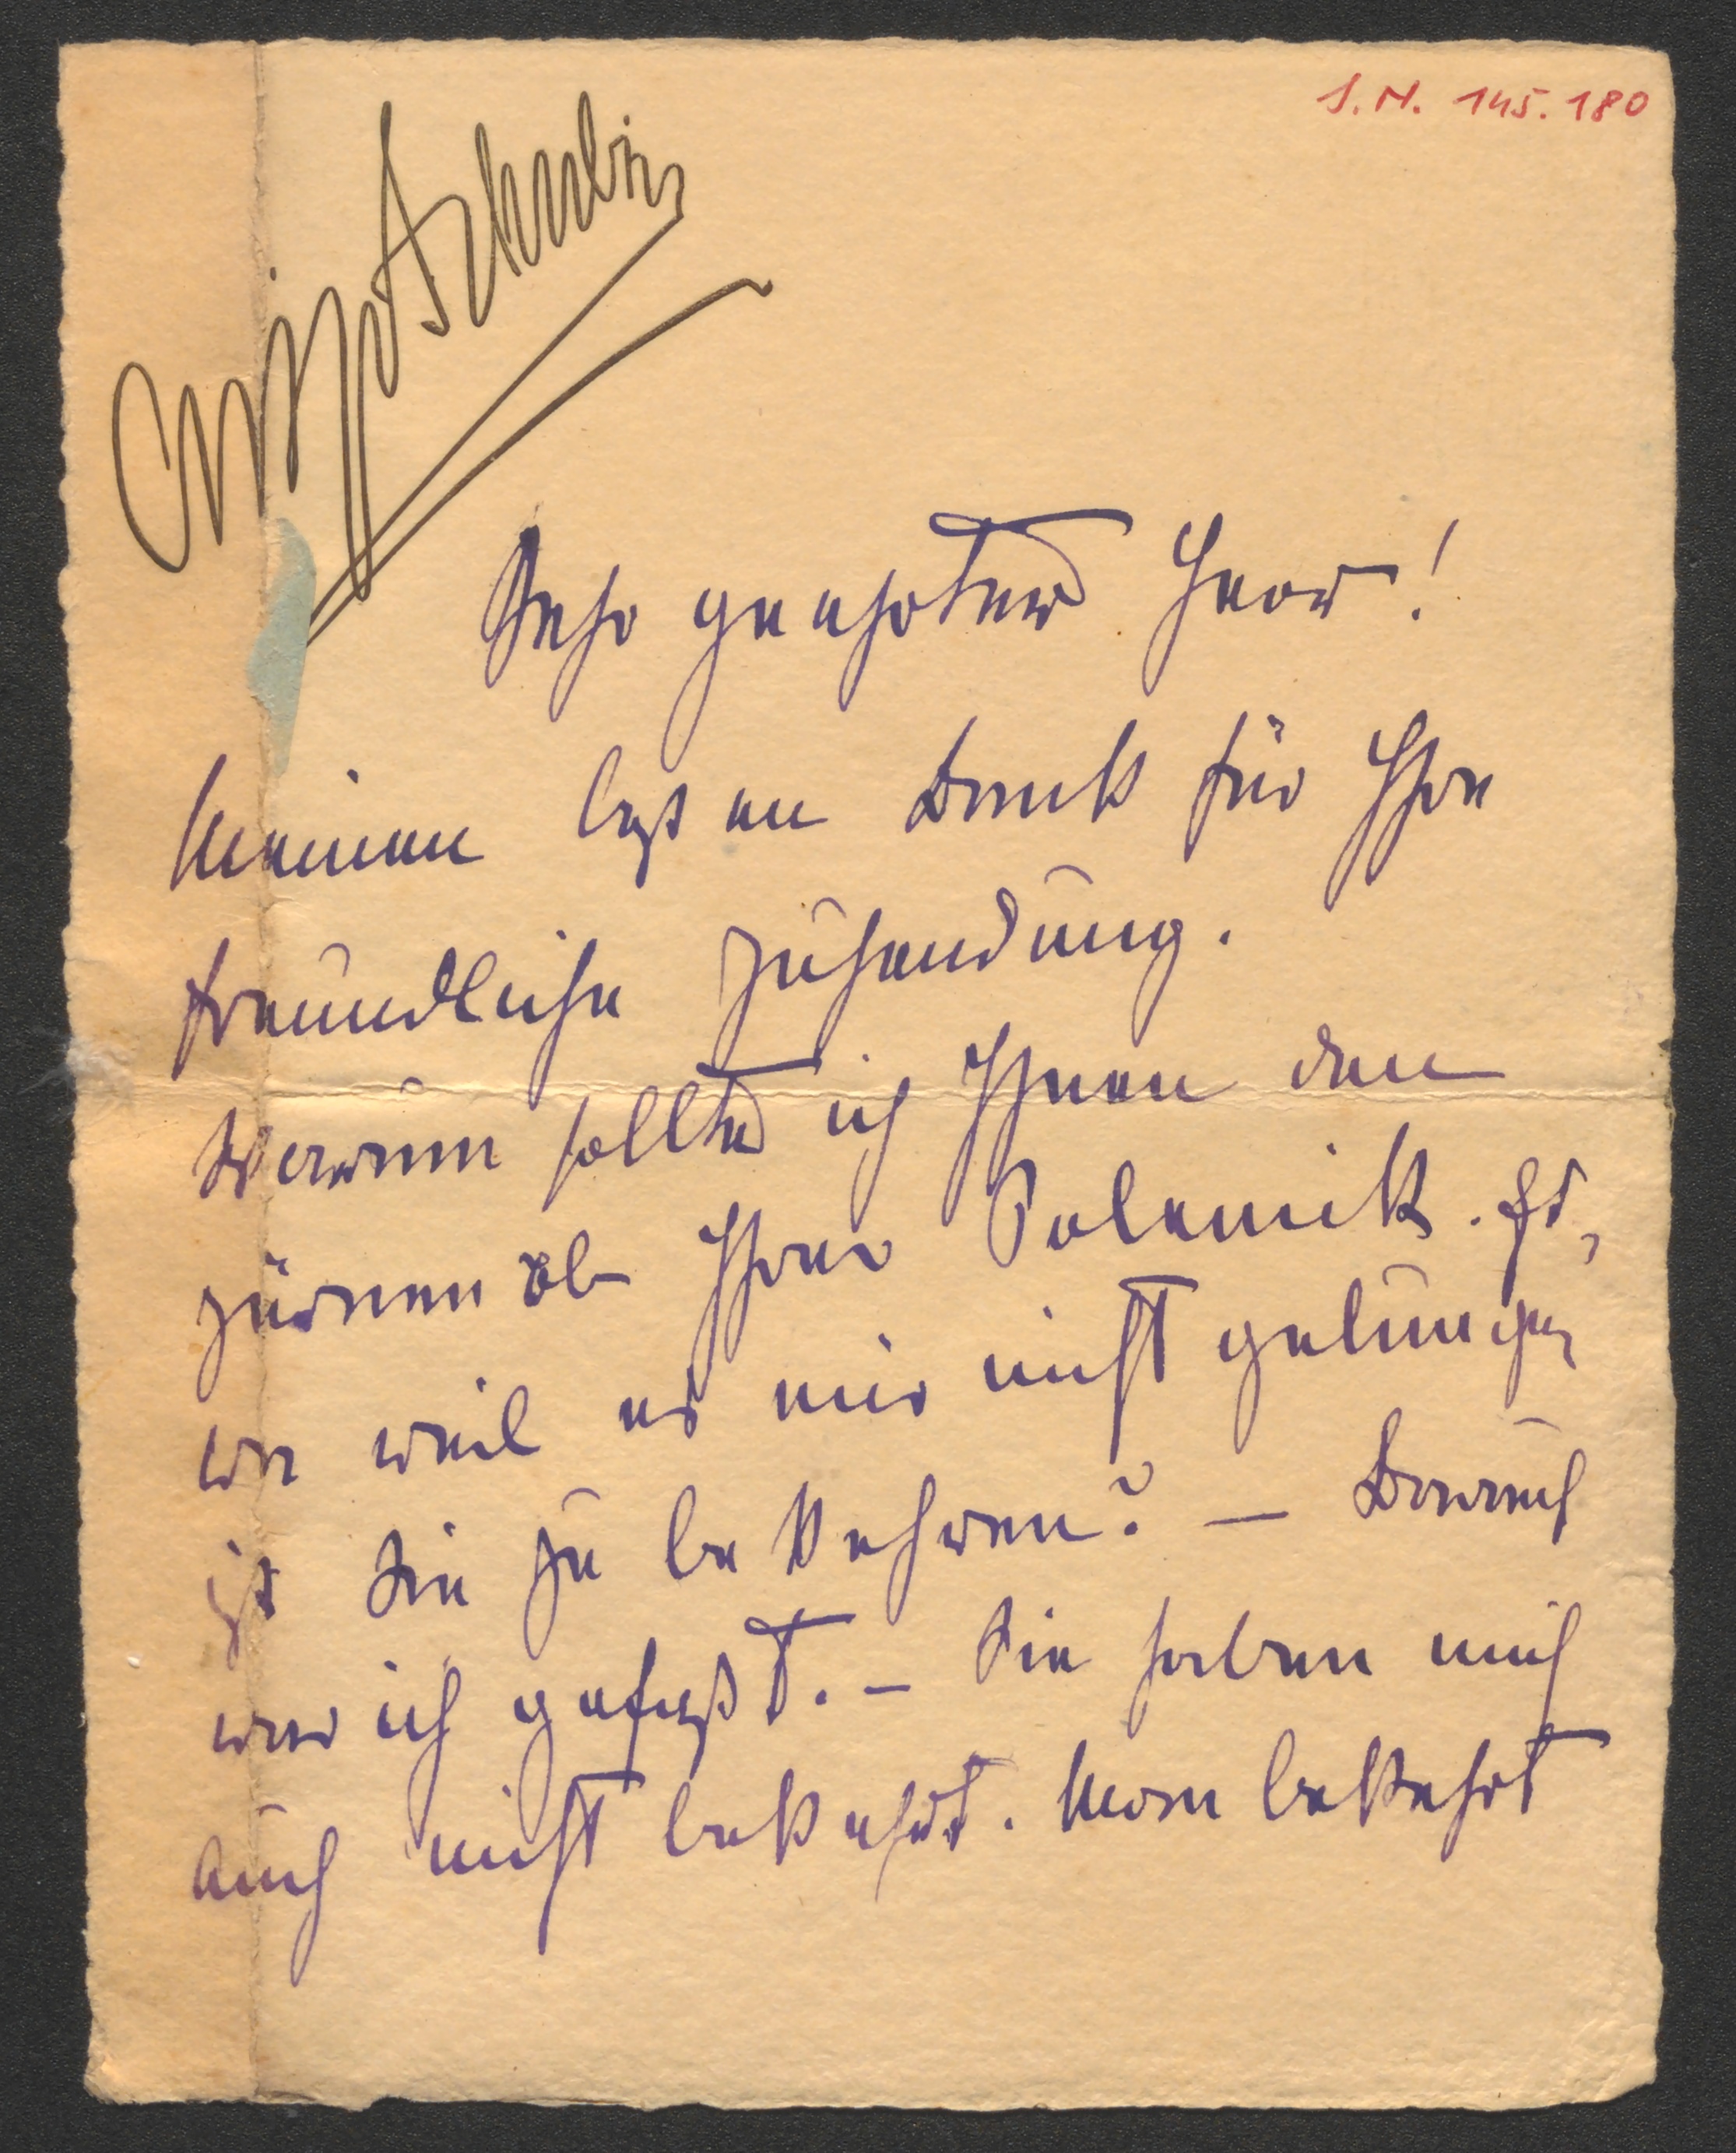 I.N. 145.180
Ossip Schubin
Sehr geehrter Herr!
Meinen besten Dank für Ihre
freundliche Zusendung.
Warum sollte ich Ihnen denn
zürnen ob Ihrer Polemik. Et-
wa weil es mir nicht gelungen
ist Sie zu bekehren? — Darauf
war ich gefaßt. — Sie haben mich
auch nicht bekehrt. Man bekehrt